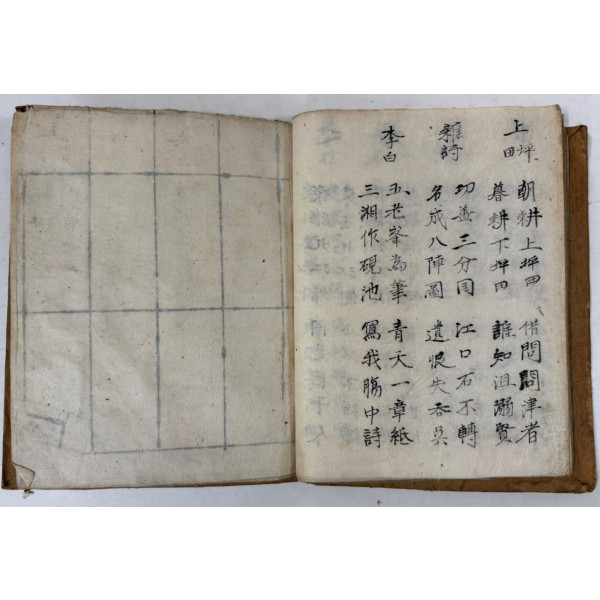 上坪田
朝耕上坪田 借問問津者
暮耕下坪田 誰知沮溺賢
雜詩
功盖三分囯 江口石不轉
名成八陣圖 遺恨失吞吳
李白
五老峯為筆 青天一章紙
三湘作硯池 寫我腸中詩